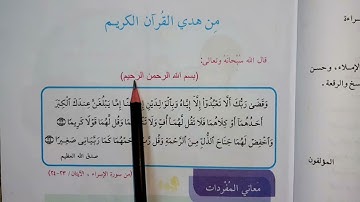 مِن هدي القُرآن الكريم
قال الله سُبْحانَهُ وتعالى:
(بسم الله الرحمن الرحيم)
وَقَضَىٰ رَبُّكَ أَلَّا تَعْبُدُوٓا إِلَّآ إِيَّاهُ وَبِالْوَالِدَيْنِ إِمَّا يَبْلُغَنَّ عِندَكَ الْكِبَرَ
أَحَدُهُمَآ أَوْ كِلَاهُمَا فَلَا تَقُل لَّهُمَآ أُفٍّ وَلَا وَقُل لَّهُمَا قَوْلًا كَرِيمًا ﴿٢٣﴾
وَاخْفِضْ لَهُمَا جَنَاحَ الذُّلِّ مِنَ الرَّحْمَةِ وَقُل كَمَا رَبَّيَانِي صَغِيرًا ﴿٢٤﴾
صدق الله العظيم
(من سورة الإسراء - الآيتان/ ٢٣-٢٤)
معاني المُفْردات
الإملاء، وحسن
والرقعة.
المؤلفون